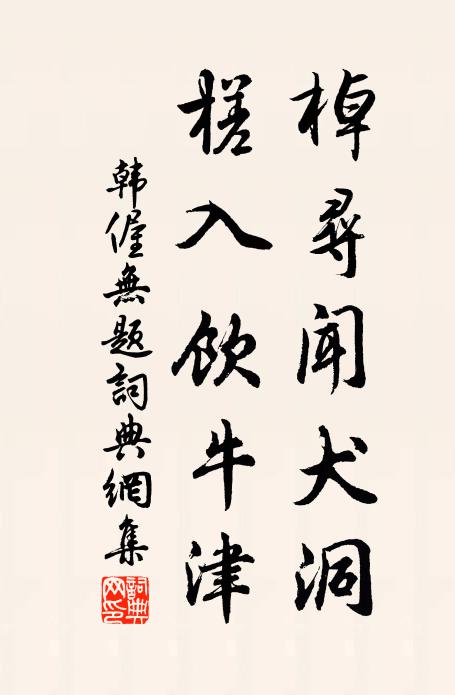 棹尋聞犬洞
槎入飲牛津
韩偓無题詞典網集
詞典网印